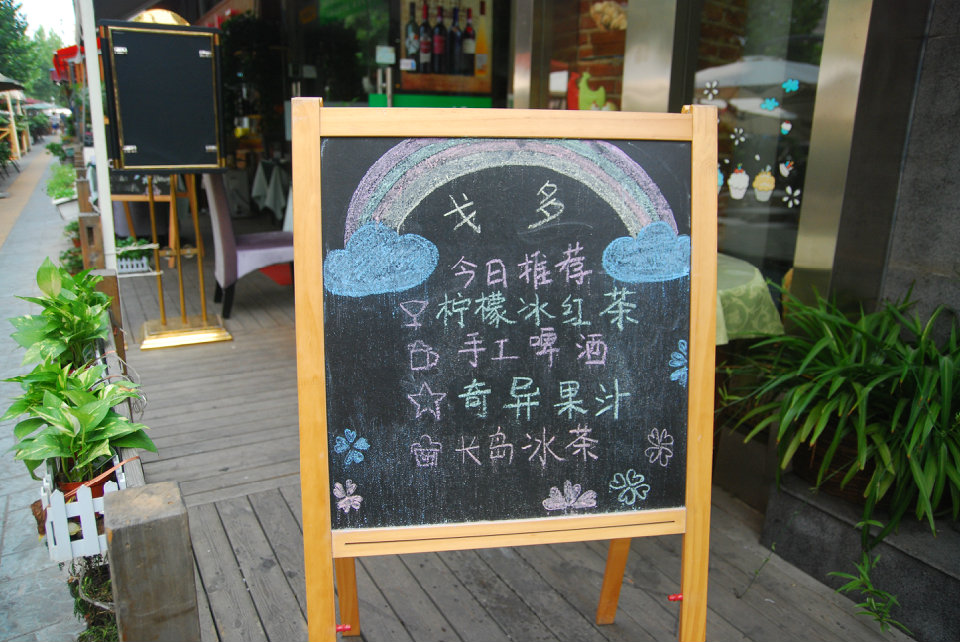 戈多
今日推荐
柠檬冰红茶
手工啤酒
奇异果汁
长岛冰茶